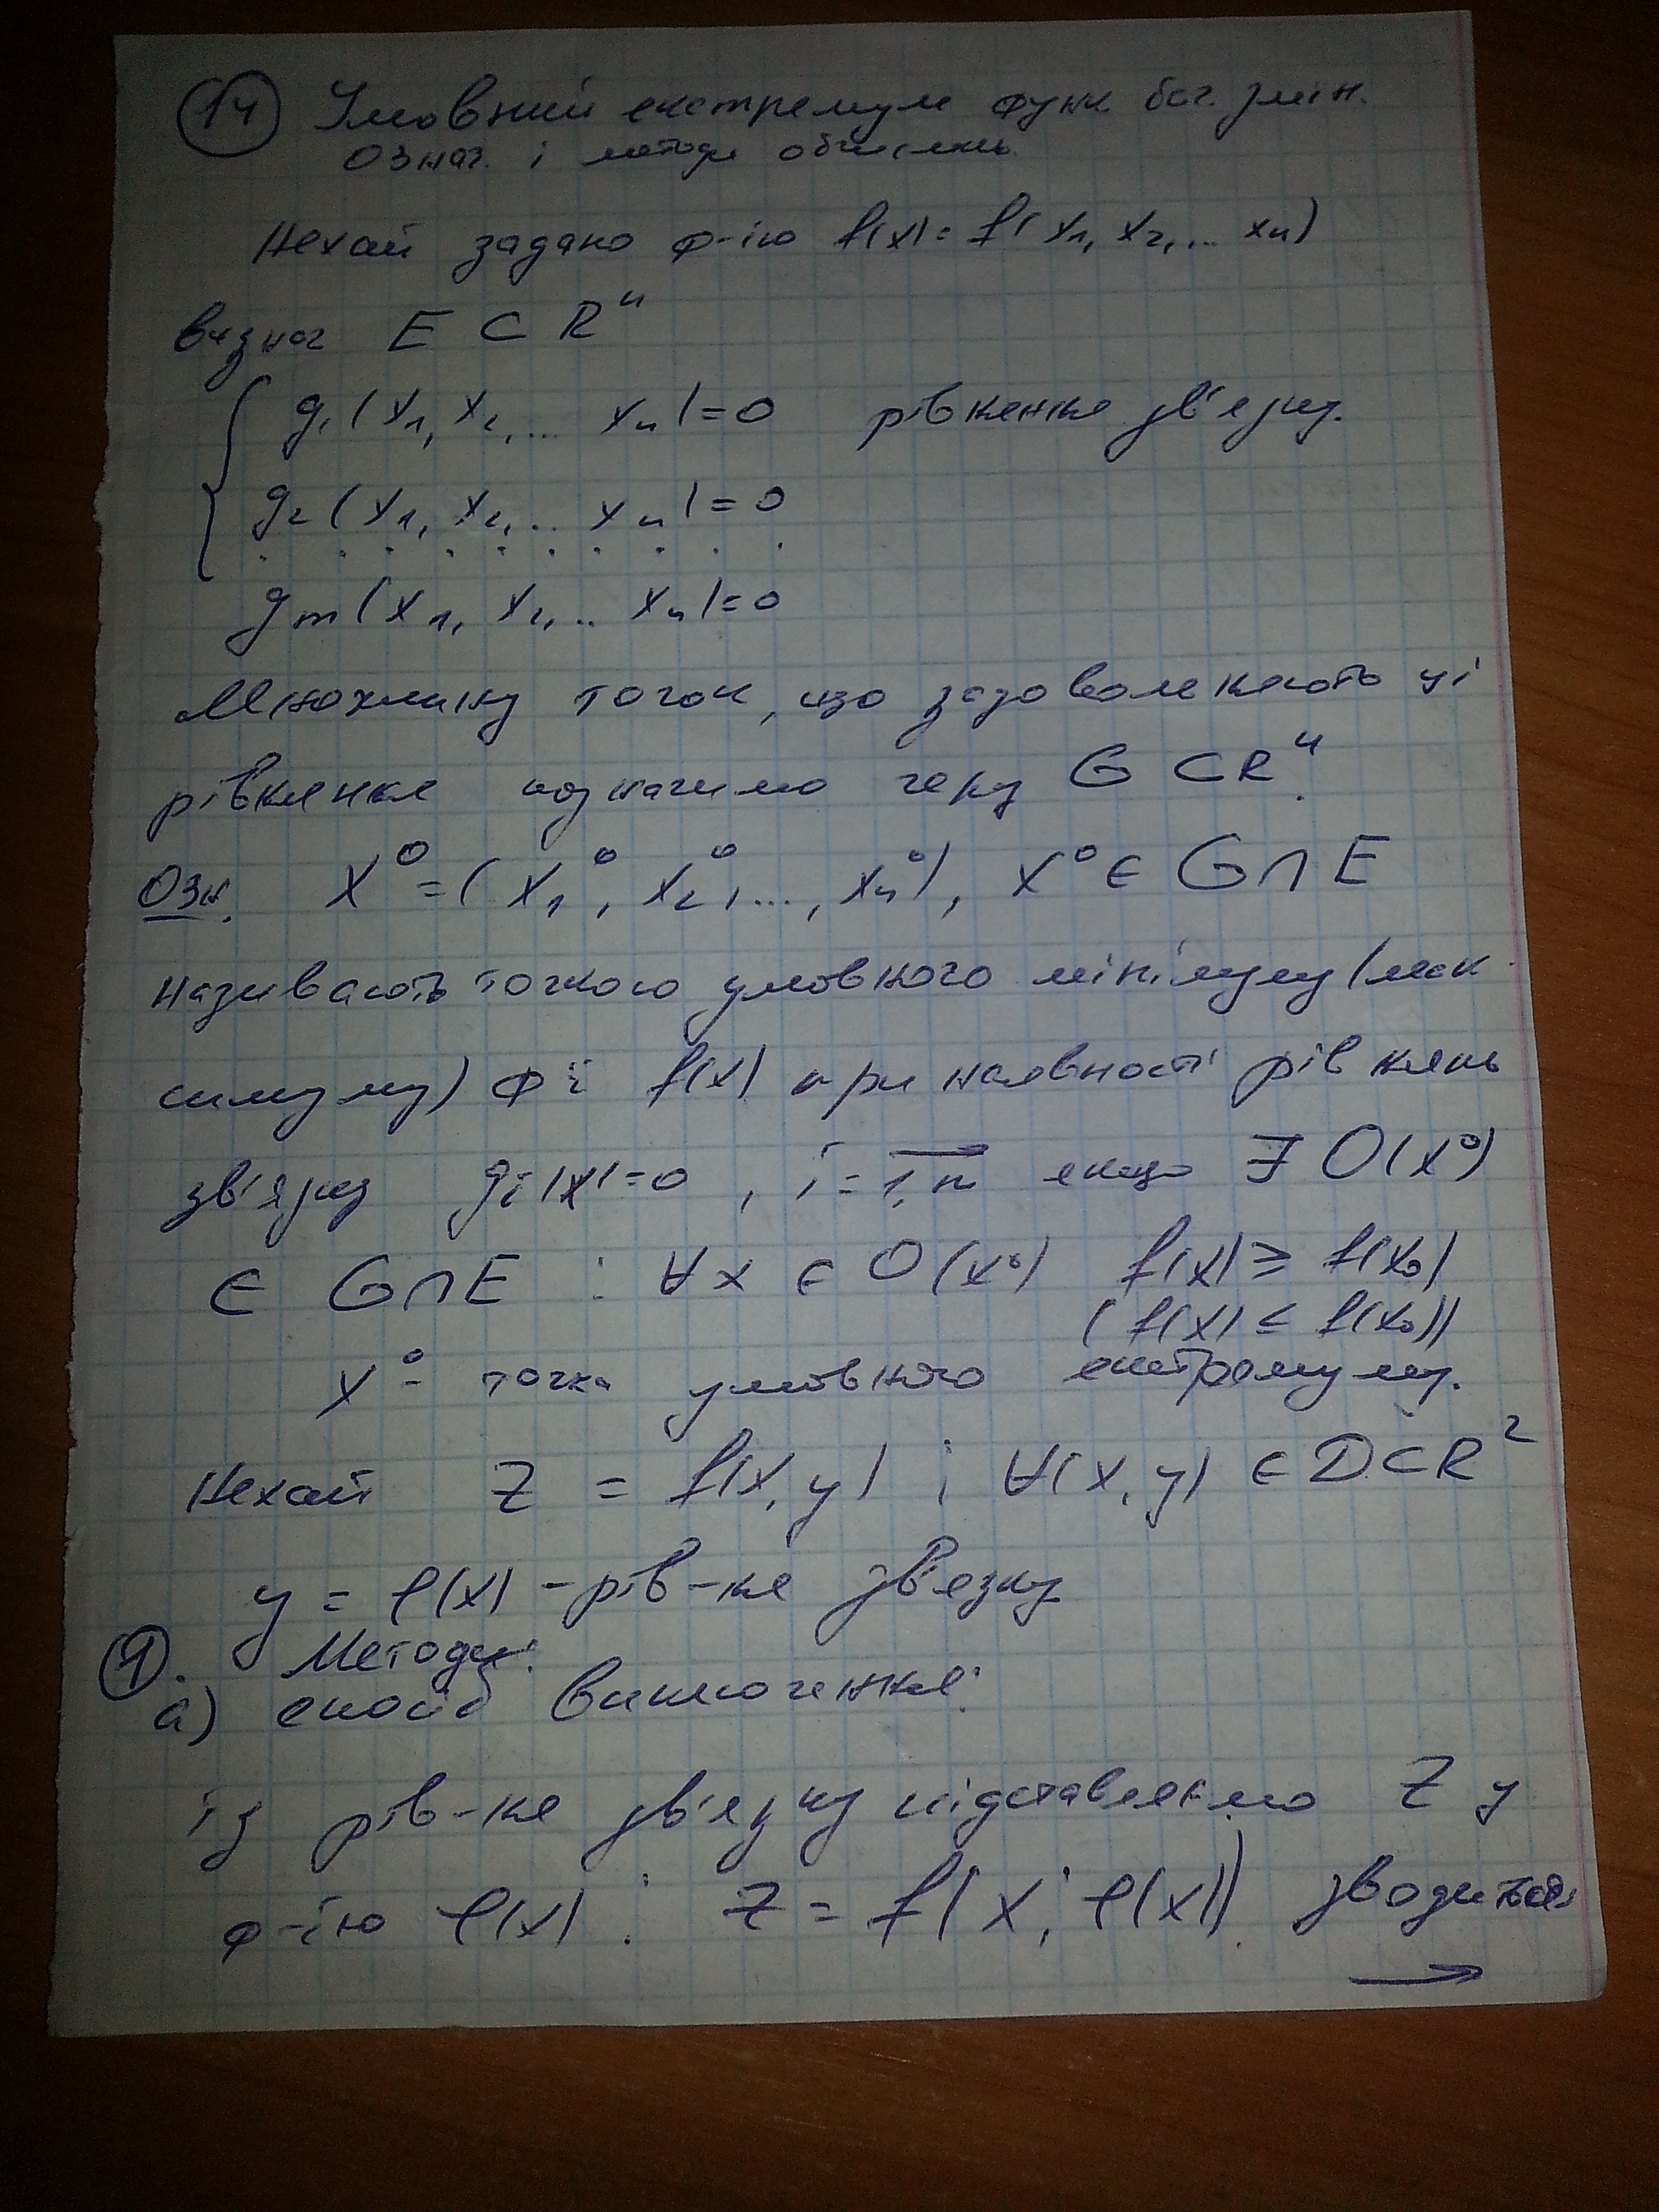 14 Умовний екстремум функ баг. змін.
Означ. і методи обчислень.
Нехай задано ф-ію f(x) = f(x₁, x₂, ... xₙ)
визнач E ⊂ Rⁿ
g₁(x₁, x₂, ... xₙ) = 0 рівняння зв'язку.
g₂(x₁, x₂, ... xₙ) = 0
. . . . . . . . . .
gₘ(x₁, x₂, .. xₙ) = 0
Множину точок, що задовольняють ці
рівняння позначимо через G ⊂ Rⁿ.
Озн. x⁰ = (x₁⁰, x₂⁰, ..., xₙ⁰), x⁰ ∈ G ∩ E
називають точкою умовного мінімуму (мак-
симуму) ф-ї f(x) при наявності рівнянь
зв'язку gᵢ(x) = 0, i = 1,m якщо ∃ O(x⁰)
∈ G ∩ E : ∀x ∈ O(x⁰) f(x) ≥ f(x₀)
(f(x) ≤ f(x₀))
x⁰ - точка умовного екстремуму.
Нехай z = f(x, y) ; ∀(x, y) ∈ D ⊂ R²
y = φ(x) - рів-ня зв'язку
1. Методи:
а) спосіб виключення:
із рів-ня зв'язку підставляємо z у
ф-ію φ(x) : z = f(x, φ(x)). зводиться
→